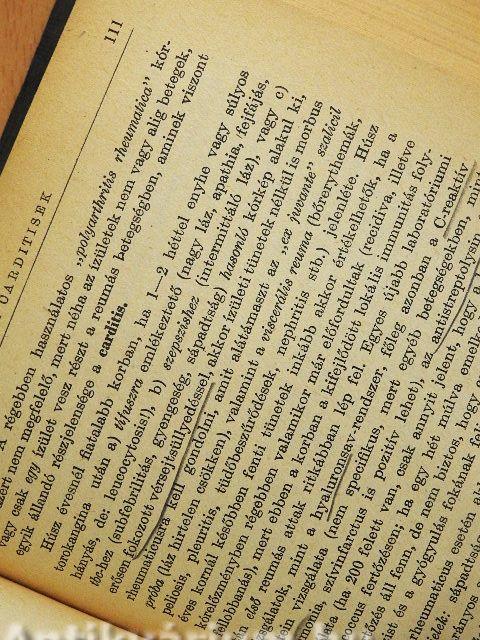 CARDITISEK 111
A régebben használatos „polyarthritis rheumatica" kór-
mert nem megfelelő, mert néha az ízületek nem vagy alig betegek,
vagy csak egy ízület vesz részt a reumás betegségben, aminek viszont
egyik állandó részjelensége a carditis.
Húsz évesnél fiatalabb korban, ha 1—2 héttel enyhe vagy súlyos
torokangina után a) tífuszra emlékeztető (nagy láz, apathia, fejfájás,
hányás, de: leucocytosis!), b) szepszishez (intermittáló láz), vagy c)
tbc-hez (subfebrilitás, gyengeség, sápadtság) hasonló kórkép alakul ki,
erősen fokozott vérsejtsüllyedéssel, akkor ízületi tünetek nélkül is morbus
rheumaticusra kell gondolni, amit alátámaszt az „ex juvante" szalicil
próba (láz hirtelen csökken), valamint a viscerális reuma (bőrerythemák,
peliosis, pleuritis, tüdőbeszűrődések, nephritis stb.) jelenléte. Húsz
éves kornál későbben fenti tünetek inkább akkor értékelhetők, ha a
kórelőzményben régebben valamikor már előfordultak (recidiva, illetve
fellobbanás), mert ebben a korban a kifejlődött lokális immunitás foly-
első reumás attak ritkábban lép fel. Egyes újabb laboratóriumi
vizsgálatok, mint a hyaluronsav-rendszer, főleg azonban a C-reaktív
vizsgálata (nem specifikus, mert egyéb betegségekben,
szívinfarctus is pozitív lehet), az antistreptolysin
(ha 200 felett van, csak annyit jelent, hogy a
fertőzésen; ha egy hét múlva
áll fenn, de nem biztos, hogy
és a gyógyulás fokának
rheumaticus esetén
sápadtság